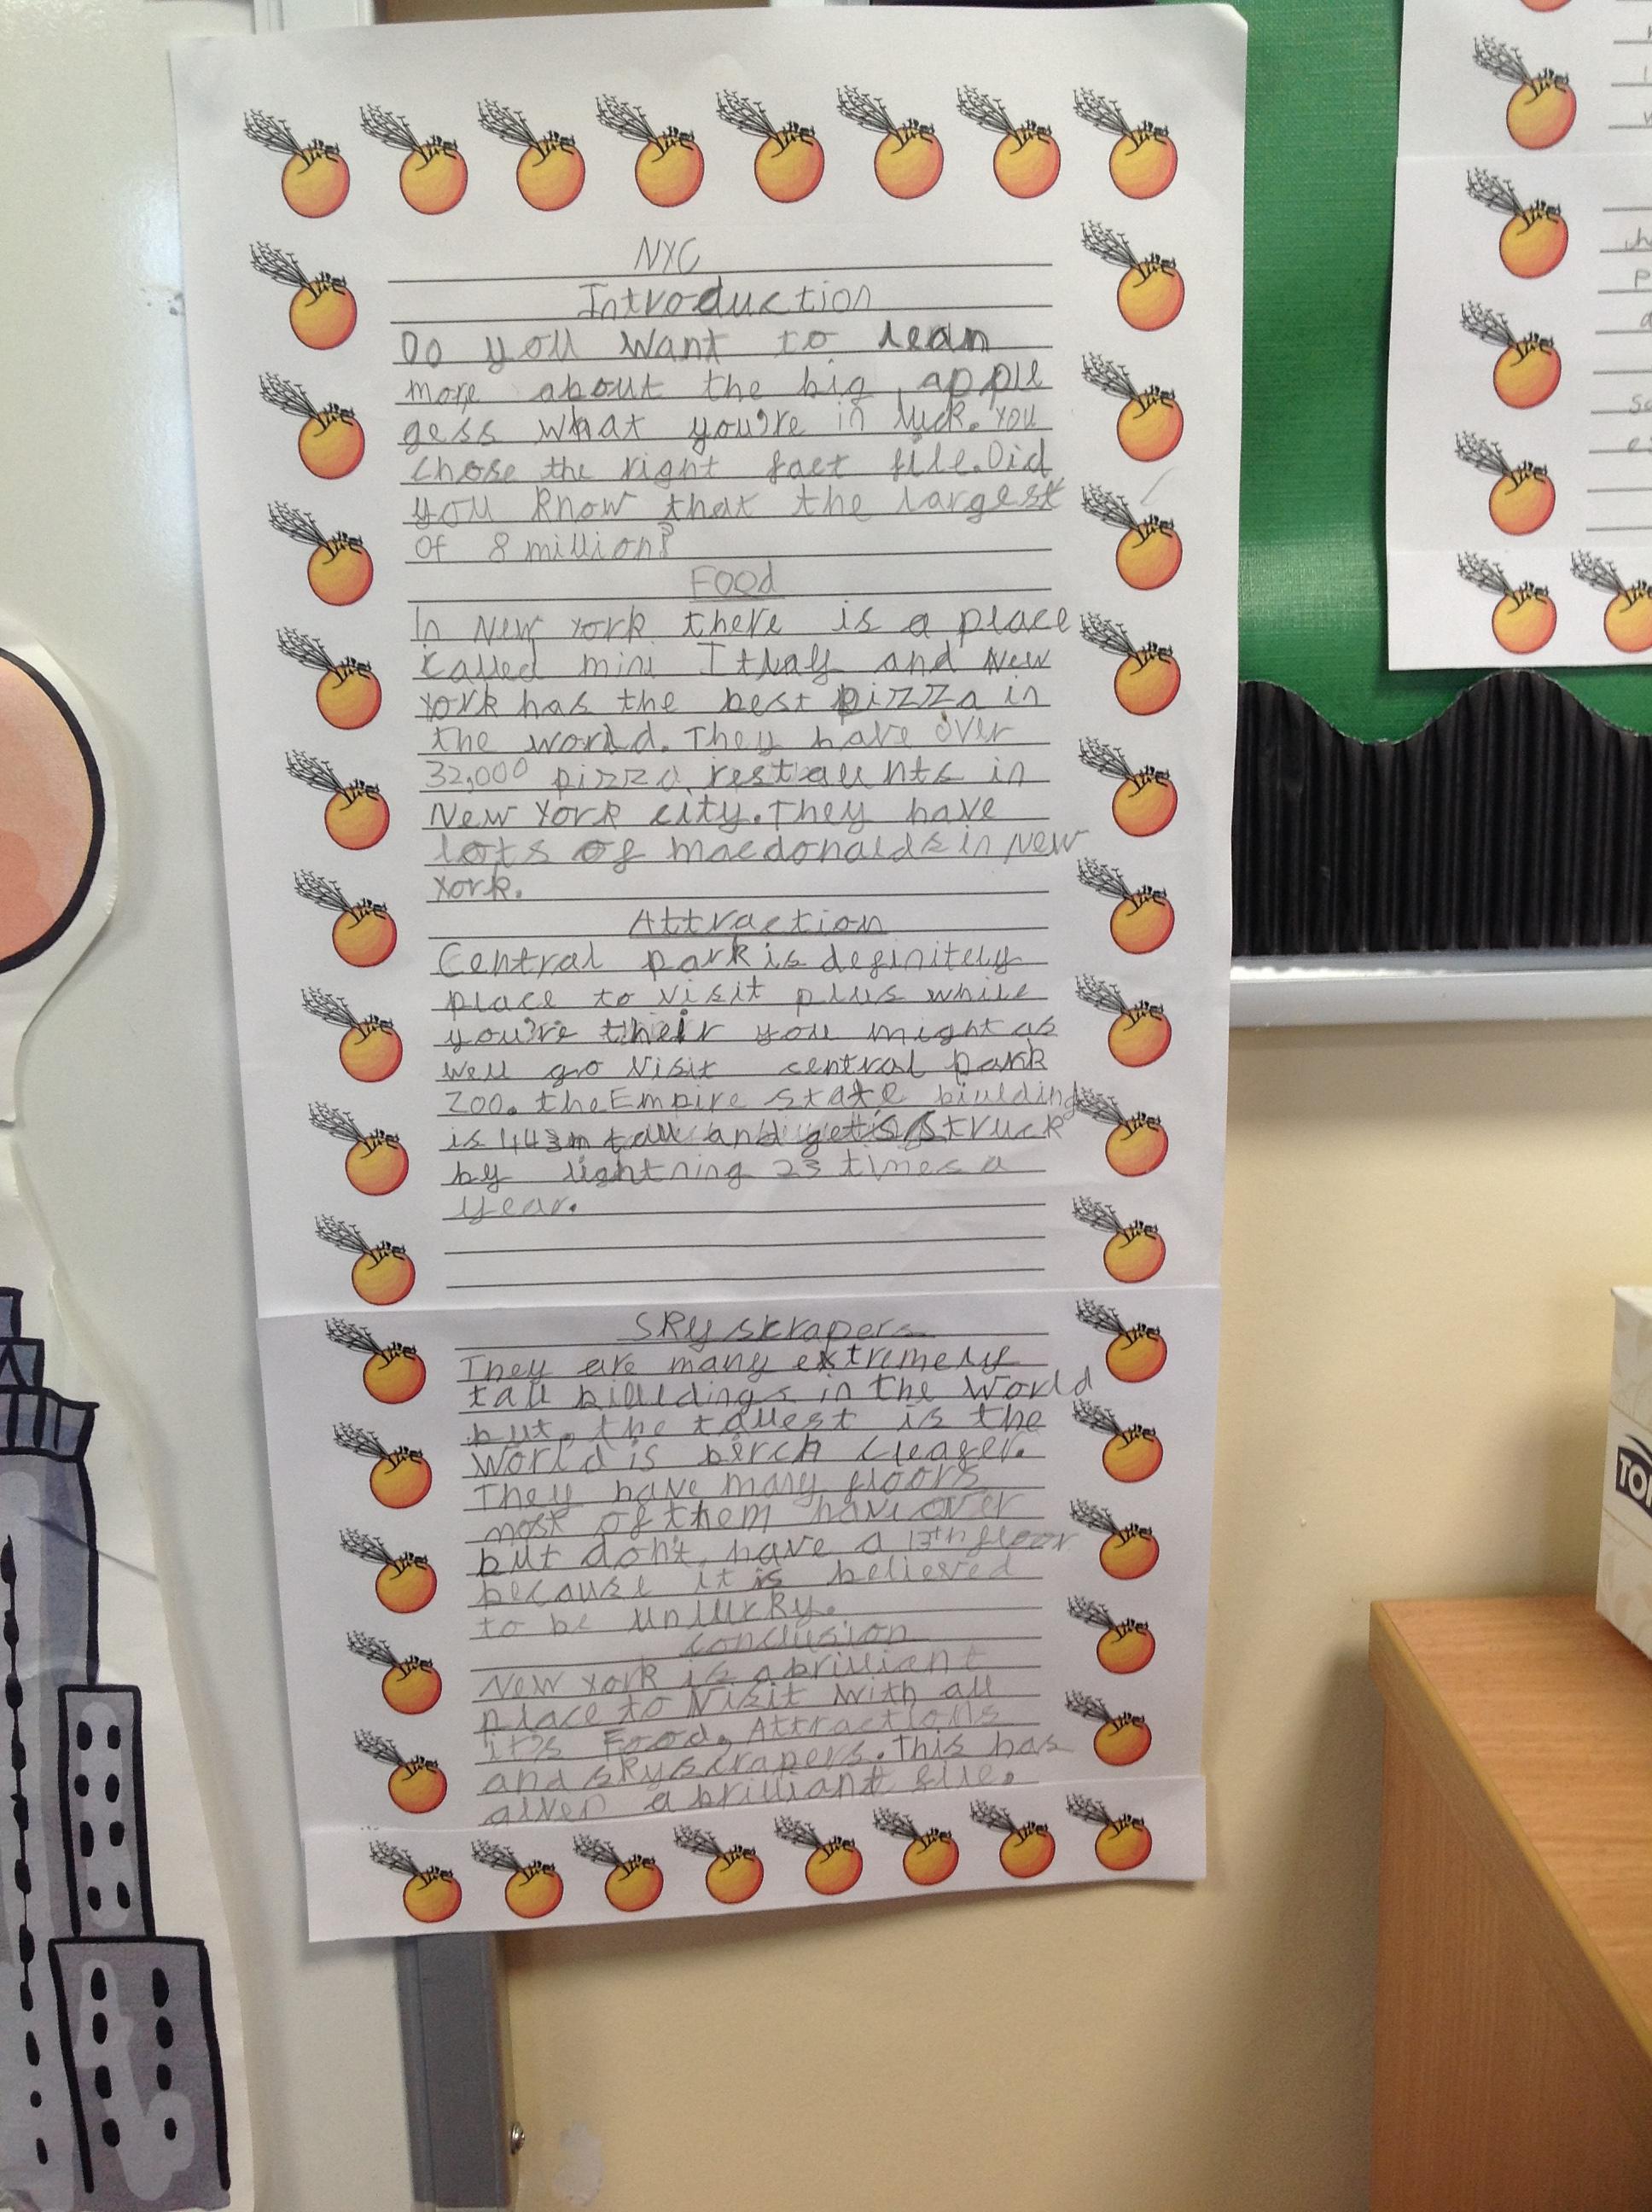 NYC
Introduction
Do you want to lean
more about the big apple
gess what you're in luck. You
chose the right fact file. Did
you know that the largest
of 8 million?
Food
In New York there is a place
called mini Itlaly and New
York has the best pizza in
the world. They have over
32,000 pizza restaunts in
New York city. They have
lots of macdonalds in New
York.
Attraction
Central park is definitely
place to visit plus while
you're their you might as
well go visit central park
Zoo. the Empire state biulding
is 443m tall and gets struck
by lightning 23 times a
year.
Skyskrapers
They are many extremely
tall biuldings in the world
but the tallest is the
world is birch
They have many floors
most of them have over
but don't have a 13th floor
because it is believed
to be unlucky.
conclusion
New York is a brilliant
place to visit with all
it's Food, Attractions
and skyscrapers. This has
given a brilliant file.